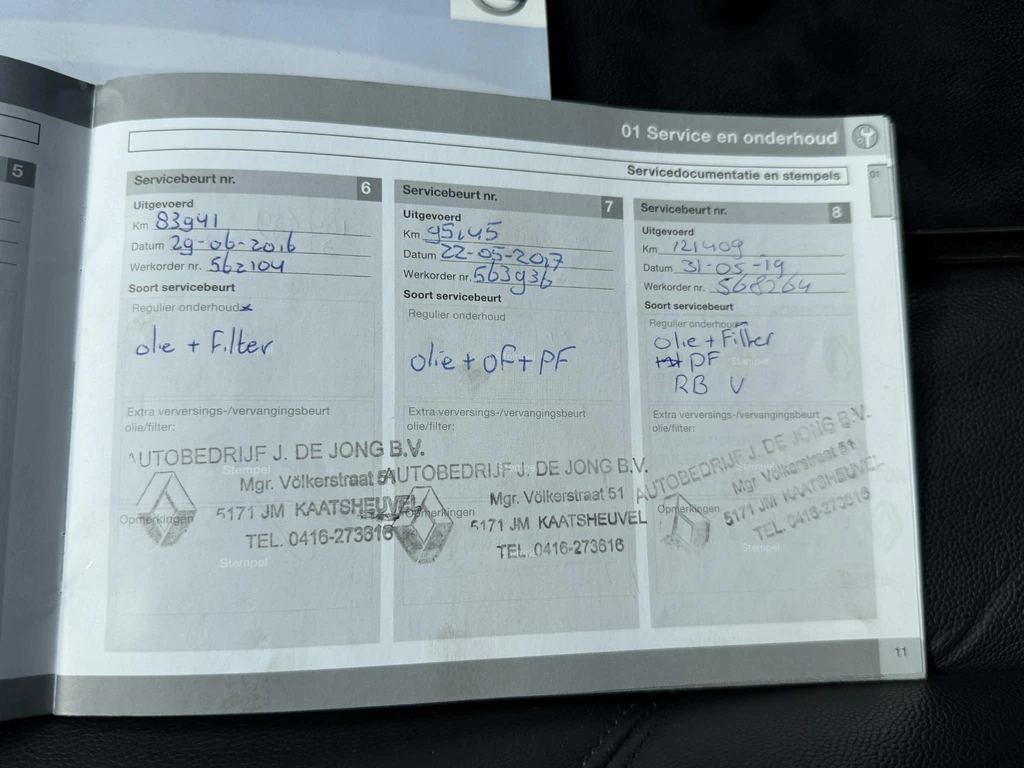 01 Service en onderhoud
01
Servicedocumentatie en stempels
5
Servicebeurt nr. 6
Uitgevoerd
Km 83941
Datum 29-06-2016
Werkorder nr. 562104
Soort servicebeurt
Regulier onderhoud x
olie + Filter
Extra verversings-/vervangingsbeurt
olie/filter:
AUTOBEDRIJF J. DE JONG B.V.
Stempel
Mgr. Völkerstraat 51
Opmerkingen
5171 JM KAATSHEUVEL
TEL. 0416-273616
Stempel
Servicebeurt nr. 7
Uitgevoerd
Km 95145
Datum 22-05-2017
Werkorder nr. 563936
Soort servicebeurt
Regulier onderhoud
olie + OF + PF
Extra verversings-/vervangingsbeurt
olie/filter:
AUTOBEDRIJF J. DE JONG B.V.
Mgr. Völkerstraat 51
Opmerkingen
5171 JM KAATSHEUVEL
TEL. 0416-273616
Servicebeurt nr. 8
Uitgevoerd
Km 121409
Datum 31-05-19
Werkorder nr. 568264
Soort servicebeurt
Regulier onderhoud
olie + Filter
PF
Stempel
RB V
Extra verversings-/vervangingsbeurt
olie/filter:
AUTOBEDRIJF J. DE JONG B.V.
Mgr. Völkerstraat 51
Opmerkingen
5171 JM KAATSHEUVEL
TEL. 0416-273616
Stempel
11